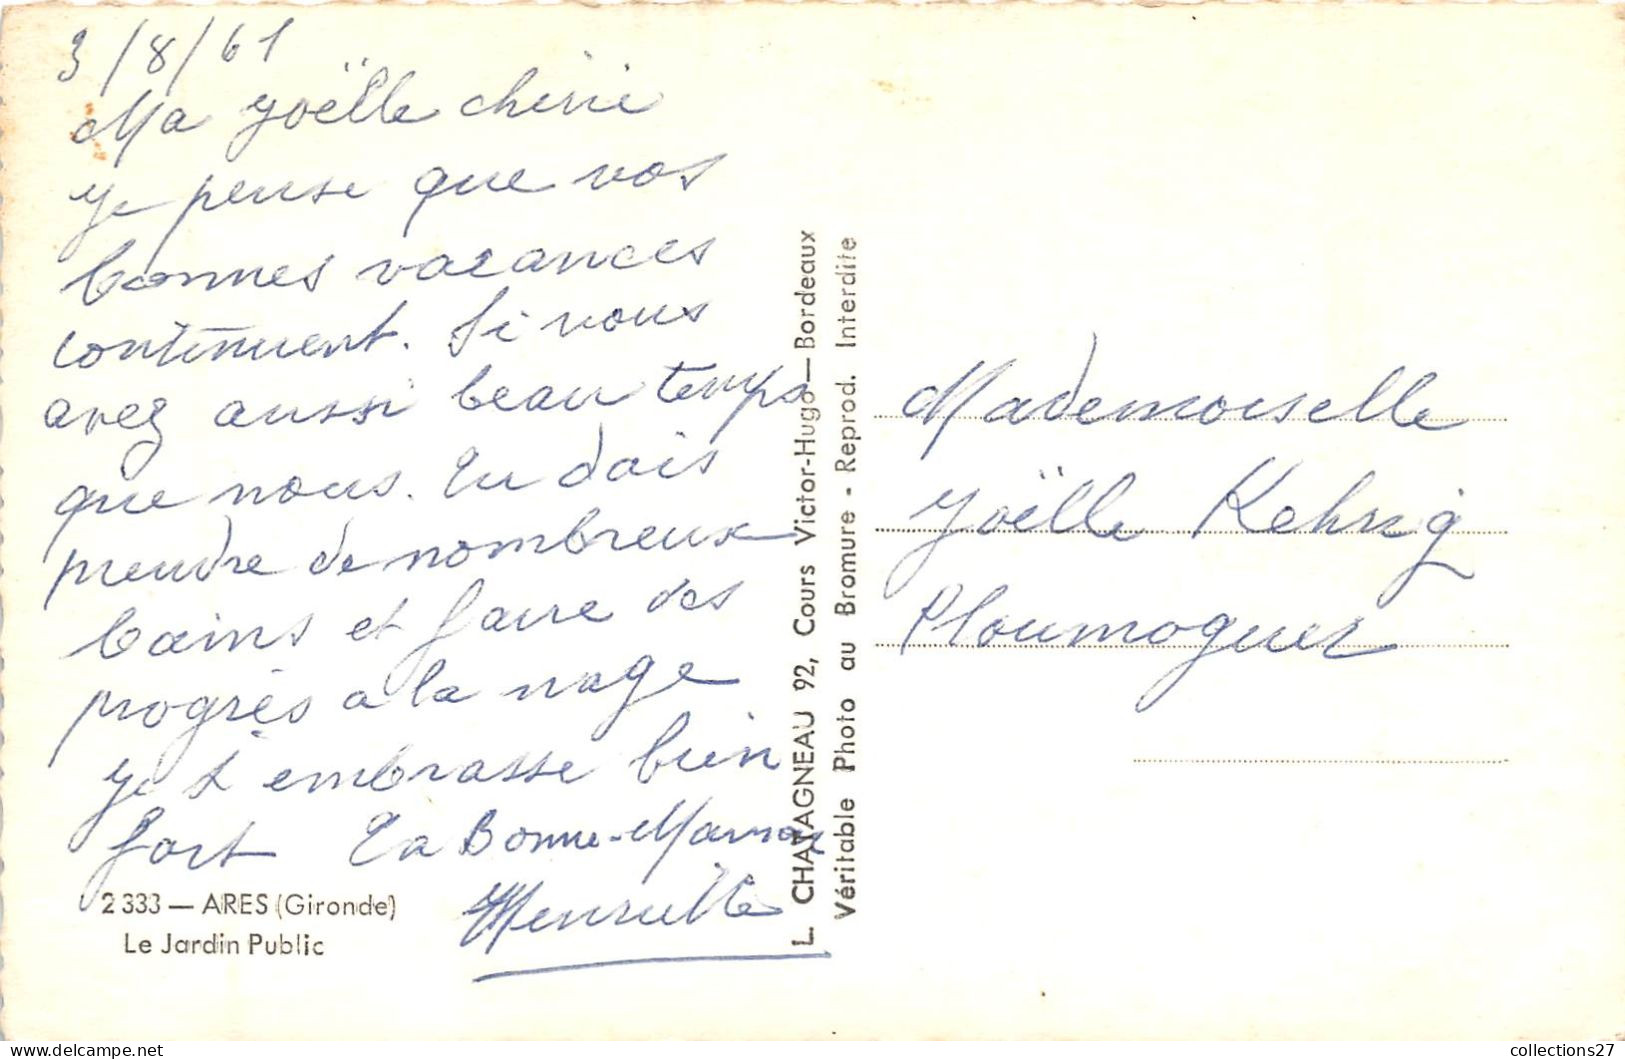 3/8/61
Ma Joëlle chérie
Je pense que vos
bonnes vacances
continuent. Si vous
avez aussi beau temps
que nous. Tu dois
prendre de nombreux
bains et faire des
progrès a la nage
Je t'embrasse bien
fort Ta Bonne-Maman
Henriette
2 333 — ARES (Gironde)
Le Jardin Public
L. CHATAGNEAU 92, Cours Victor-Hugo — Bordeaux
Véritable Photo au Bromure - Reprod. Interdite
Mademoiselle
Joëlle Kehrig
Ploumoguer
collections27